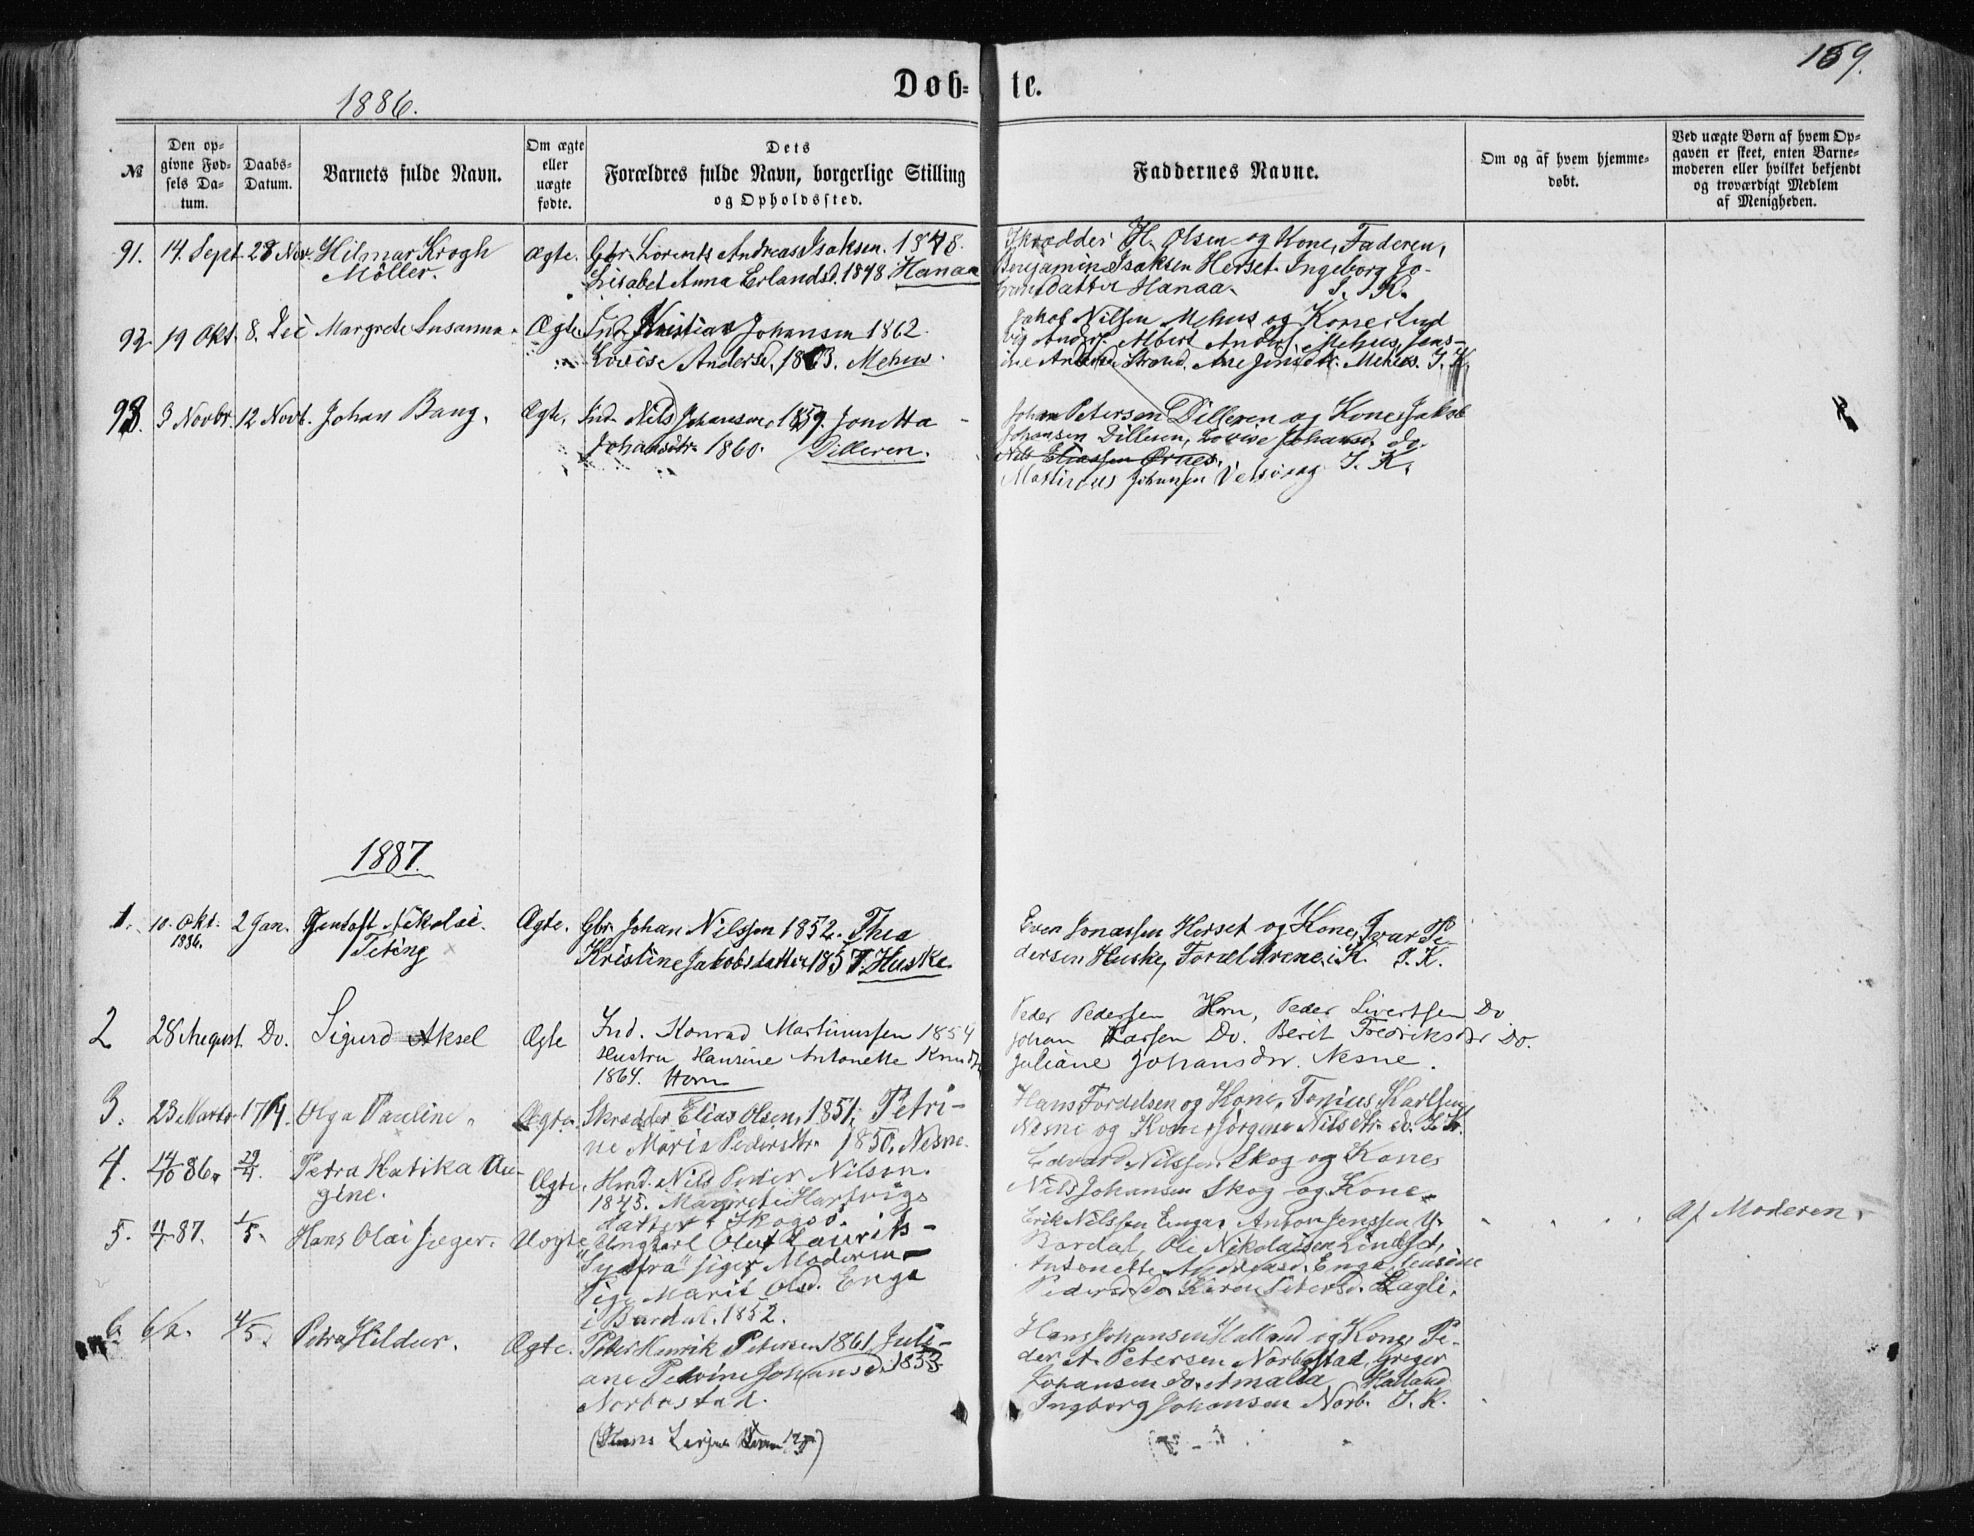 159.
1886.
Døb= te.
№
Den op-
givne Fød-
sels Da-
tum.
Daabs-
Datum.
Barnets fulde Navn.
Om ægte
eller
uægte
fødte.
Dets
Forældres fulde Navn, borgerlige Stilling
og Opholdssted.
Faddernes Navne.
Om og af hvem hjemme-
døbt.
Ved uægte Børn af hvem Op-
gaven er skeet, enten Barne-
moderen eller hvilket bekjendt
og troværdigt Medlem
af Menigheden.
91. 14. Sept. 28 Nov. Hilmar Krogh
Möller.
Ægte.
Gbr. Lorents Andreas Isaksen. 1848.
Lisabet Anna Erlandsd. 1848. Hanaa
Skrædder H. Olsen og Kone, Faderen,
Benjamin Isaksen Herset. Ingeborg Jo-
datter Hanaa. I. K.
92. 19 Okt. 8. Dec Margrete Susanna.
Ægte
Ind. Kristian Johansen 1862.
Lovise Andersd. 1863. Mehus.
Jakob Nilsen Mehus og Kone, Lud
vig Anders. Albert Anders. Mehus, Jens-
ine Strand. Ane Jensdtr. Mehus. I. K.
93. 3 Novbr. 12 Novb. Johan Bang.
Ægte.
Ind. Nils Johansen 1859. Jonetta
Johansdtr. 1860. Dilleren.
Johan Petersen Dilleren og Kone, Jakob
Johansen Dilleren, Lovise Johansd. do.
Nils Eliassen Ornes.
Martinus Johansen I. K.
1887.
1. 10. Okt. 1886. 2 Jan. Gentoft Nikolai
Teting
Ægte.
Gbr. Johan Nilssen 1852. Thea
Kristine Jakobsdatter 1857. Huske.
Even Jonassen Herset og Kone, Ivar Pe-
dersen Huske, Foræl i K. I. K.
2 28 August. Do. Sigurd Aksel
Ægte
Ind. Konrad Martinussen 1854
Hustru Hansine Antonette Knudsd.
1864. Horn
Peder Pedersen Horn, Peder Sivertsen Do
Johan Larsen Do. Berit Fredriksdr Do.
Juliane Johansdr. Nesne.
3. 23 Marts 17/4 Olga Pauline.
Ægte.
Skrædder Elias Olsen, 1851, Petri-
ne Maria Pedersdtr. 1850. Nesne.
Hans Tordelsen og Kone, Tonius Karlsen
Nesne og Kone, Jørgine Nilsdtr. do. I. K.
4. 14/10 86. 29/4. Petra Katika Au-
gine.
Ægte.
Hmd. Nils Peder Nilsen.
1845. Margrete Hartvigs
datter, Skogsö.
Edvard Nilssen Skog og Kone,
Nils Johansen Skog og Kone.
5. 11/1 87. 1/5. Hans Olai Jæger.
Uægte
Ungkarl Oluf Laurits
"Sydfra" siger Moderen
Pige Marit Olsd. Enge
i Bardal. 1852.
Erik Nilssen Enga, Anton Jenssen Y.
Bardal, Ole Nikolaisen Lindset,
Antonette Andreasd. Enga, Jensine
Pedersd. Do. Karen Petersd. Lagli.
Af Moderen.
6. 6/2. 4/5. Petra Hildur.
Ægte.
Peter Henrik Petersen 1861, Juli-
ane Petrine Johansd. 1853
Norbostad.
Hans Johansen Halland og Kone, Pe-
der A. Petersen Norbostad, Greger
Johansen do. Amalia Halland
Ingborg Johansen Norb. I. K.